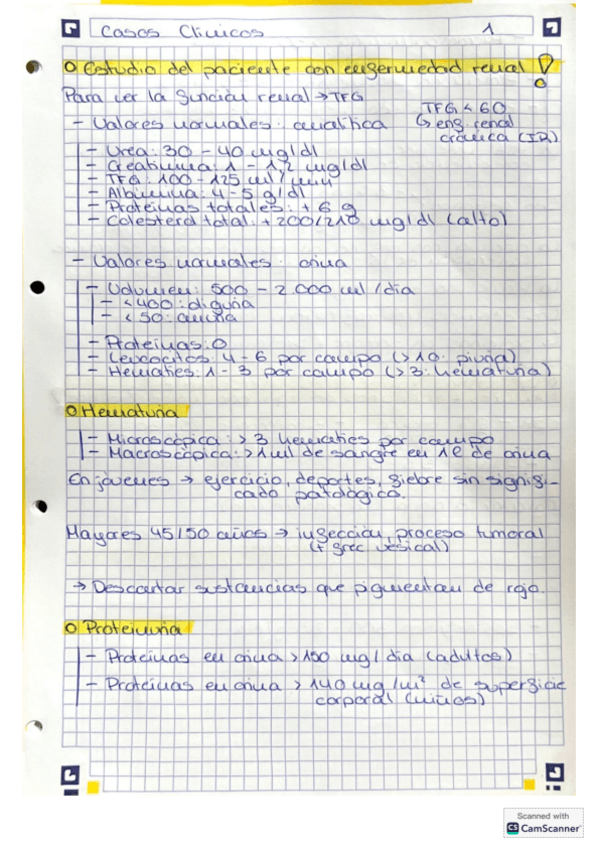 Casos Clínicos 1
○ Estudio del paciente con enfermedad renal !
Para ver la función renal → TFG
TFG < 60
↳ enf. renal
crónica (IR)
- Valores normales: analítica
- Urea: 30 - 40 mg/dl
- Creatinina: 1 - 1,2 mg/dl
- TFG: 100 - 125 ml / min
- Albúmina: 4 - 5 g/dl
- Proteínas totales: + 6 g
- Colesterol total: + 200/210 mg/dl (alto)
- Valores normales: orina
- Volumen: 500 - 2.000 ml /día
- < 400: oliguria
- < 50: anuria
- Proteínas: 0
- Leucocitos: 4 - 6 por campo (> 10: piuria)
- Hematíes: 1 - 3 por campo (> 3: hematuria)
○ Hematuria
- Microscópica: > 3 hematíes por campo
- Macroscópica: > 1 ml de sangre en 1 l de orina
En jóvenes → ejercicio, deportes, fiebre sin signifi-
cado patológico.
Mayores 45/50 años → infección, proceso tumoral
(+ frec vesical)
→ Descartar sustancias que pigmentan de rojo.
○ Proteinuria
- Proteínas en orina > 150 mg / día (adultos)
- Proteínas en orina > 140 mg /m² de superficie
corporal (niños)
Scanned with
CS CamScanner